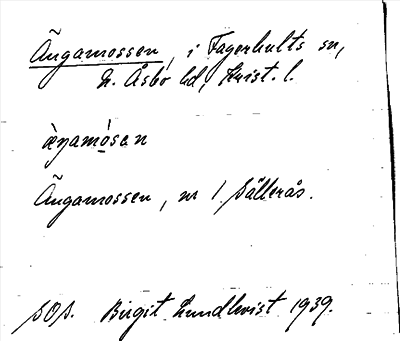 Ängamossen, i Fagerhults sn,
N. Åsbo hd, Krist. l.
æŋamòsan
Ängamossen, nr 1 Sällerås.
SOS. Birgit Lundkvist 1939.